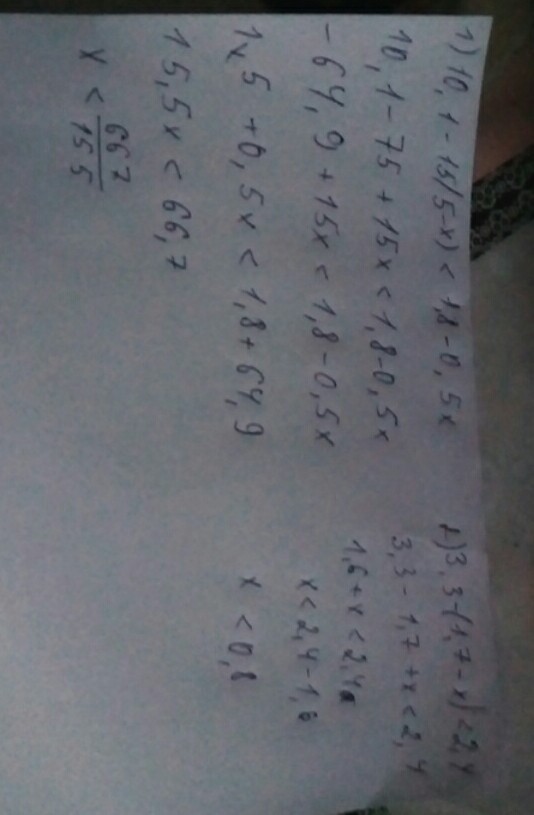 1) 10,1-15(5-x) < 1,8-0,5x
10,1-75+15x<1,8-0,5x
-64,9+15x<1,8-0,5x
1x5+0,5x<1,8+64,9
15,5x<66,7
x < 667/155
2) 3,3-(1,7-x)<2,4
3,3-1,7+x<2,4
1,6+x<2,4
x<2,4-1,6
x<0,8